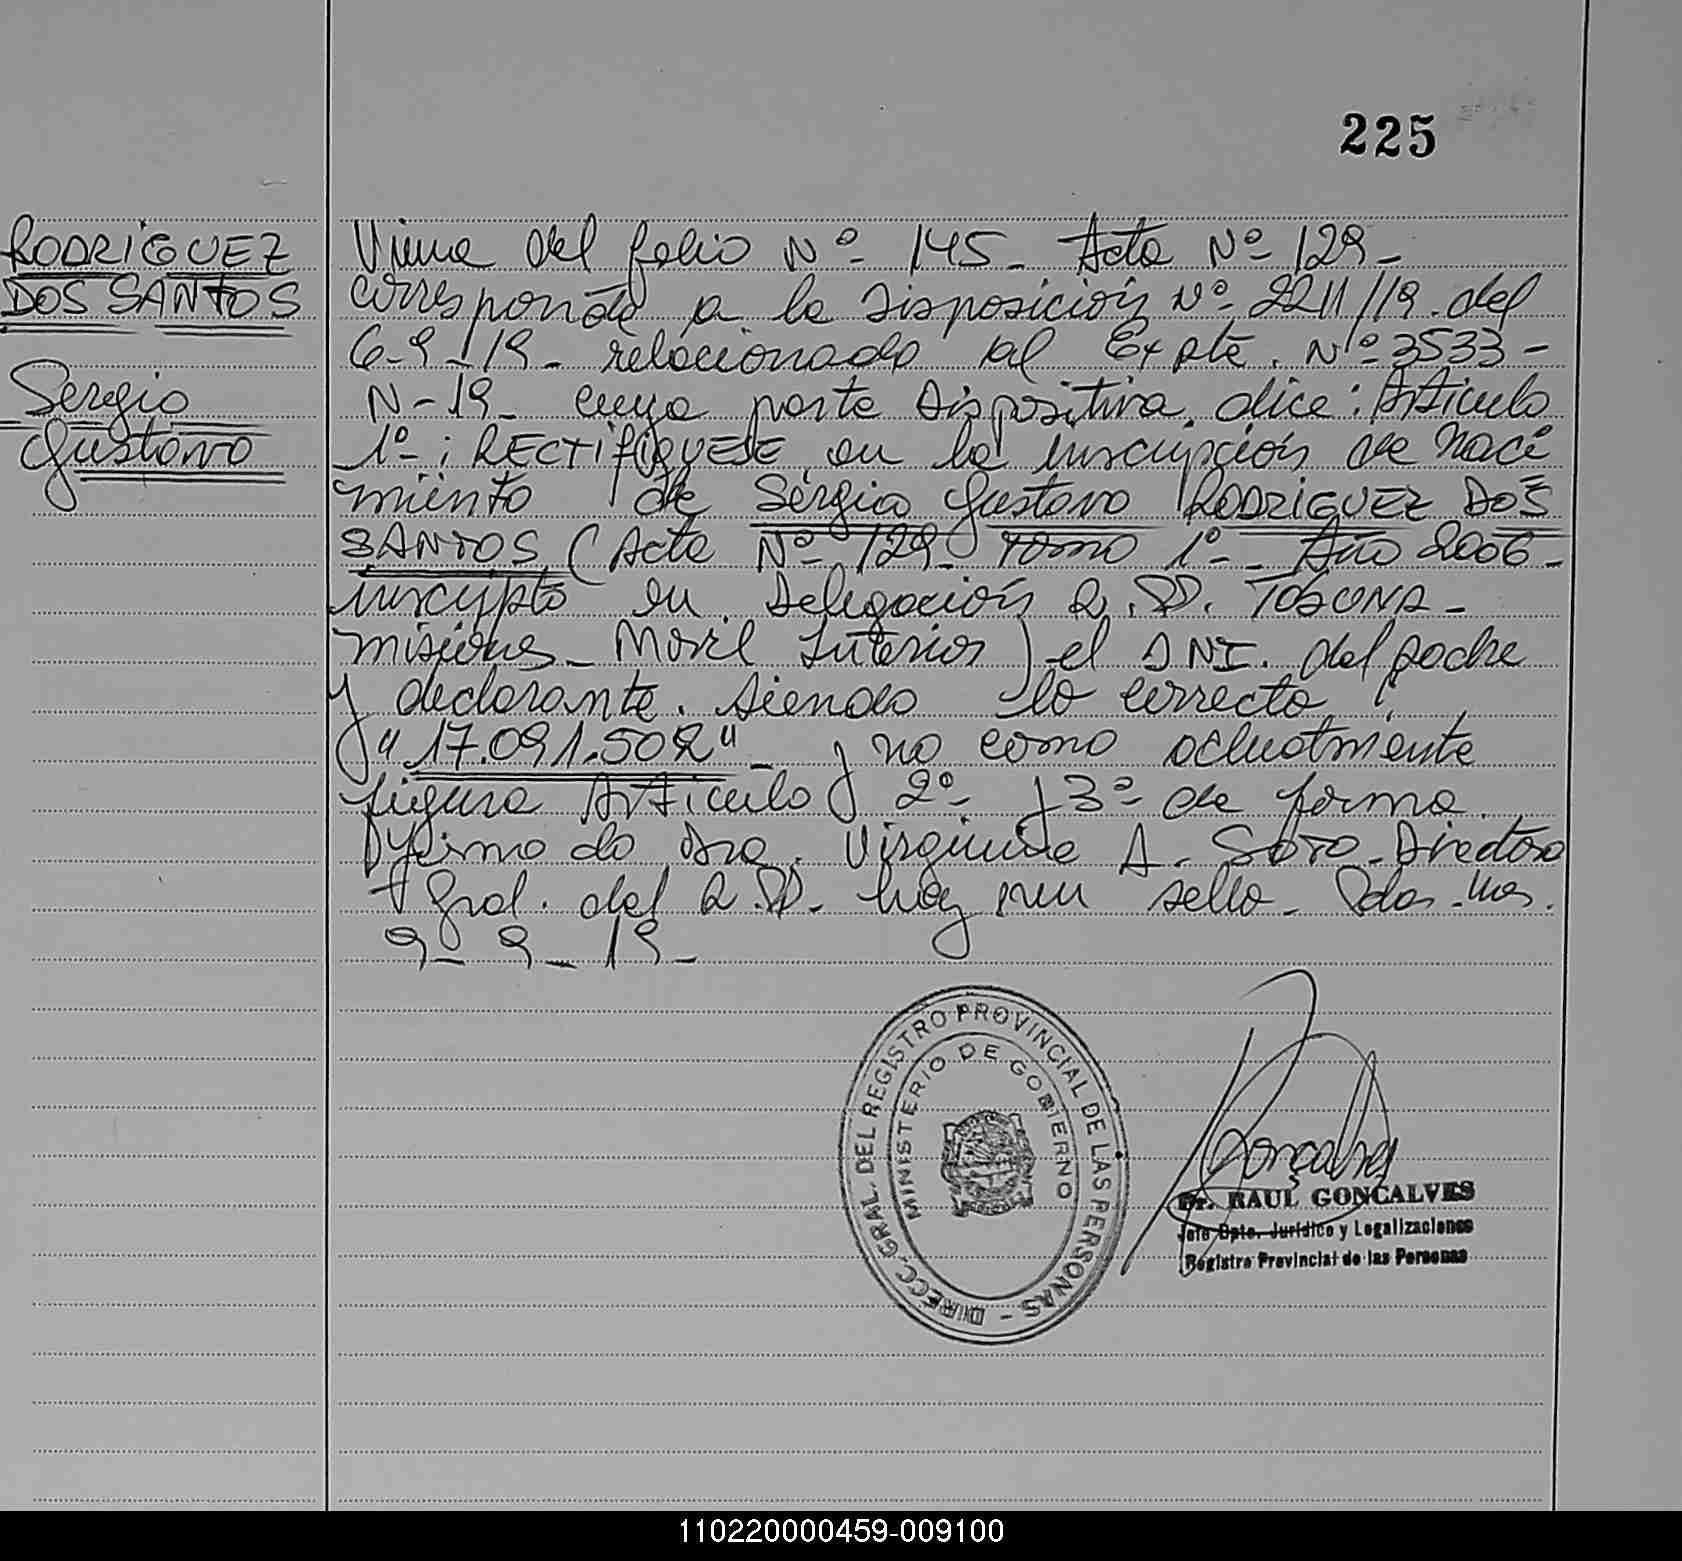 225
RODRIGUEZ
DOS SANTOS
Sergio
Gustavo
Viene del folio Nº 145- Acta Nº 129-
corresponde a la Disposición Nº 2211/19. del
6-9-19- relacionado al Expte. Nº 3533-
N-19- cuya parte Dispositiva dice: Articulo
1º-: RECTIFIQUESE en la inscripción de naci
miento de Sergio Gustavo RODRIGUEZ DOS
SANTOS (Acta Nº 129- Tomo 1º- Año 2006-
inscripto en Delegación R.PP. TOBUNA-
Misiones- Movil Interior) el DNI. del padre
y declarante. siendo lo correcto
"17.091.502"- y no como actualmente
figura Articulo 2º- y 3º- de forma.
Firmado Dra. Virginia A. SOTO- Directora
Gral. del R.PP. hay un sello- Pdas. Mnes.
9-9-19-
DIRECC. GRAL. DEL REGISTRO PROVINCIAL DE LAS PERSONAS -
MINISTERIO DE GOBIERNO
Dr. RAUL GONCALVES
Jefe Dpto. Jurídico y Legalizaciones
Registro Provincial de las Personas
110220000459-009100